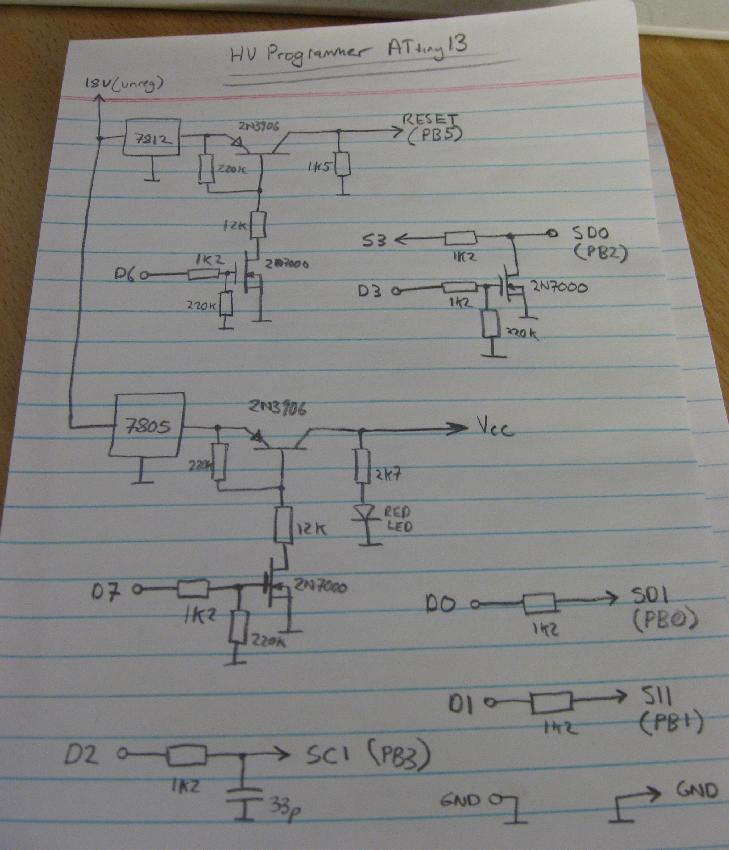 HV Programmer ATtiny13
18V(unreg)
7812
2N3906
RESET
(PB5)
220K
1K5
12K
D6
1K2
2N7000
220K
S3
1K2
SDO
(PB2)
D3
1K2
2N7000
220K
7805
2N3906
Vcc
220K
2K7
RED
LED
12K
D7
1K2
2N7000
220K
D0
1K2
SDI
(PB0)
D1
1K2
SII
(PB1)
D2
1K2
SCI (PB3)
33p
GND
GND